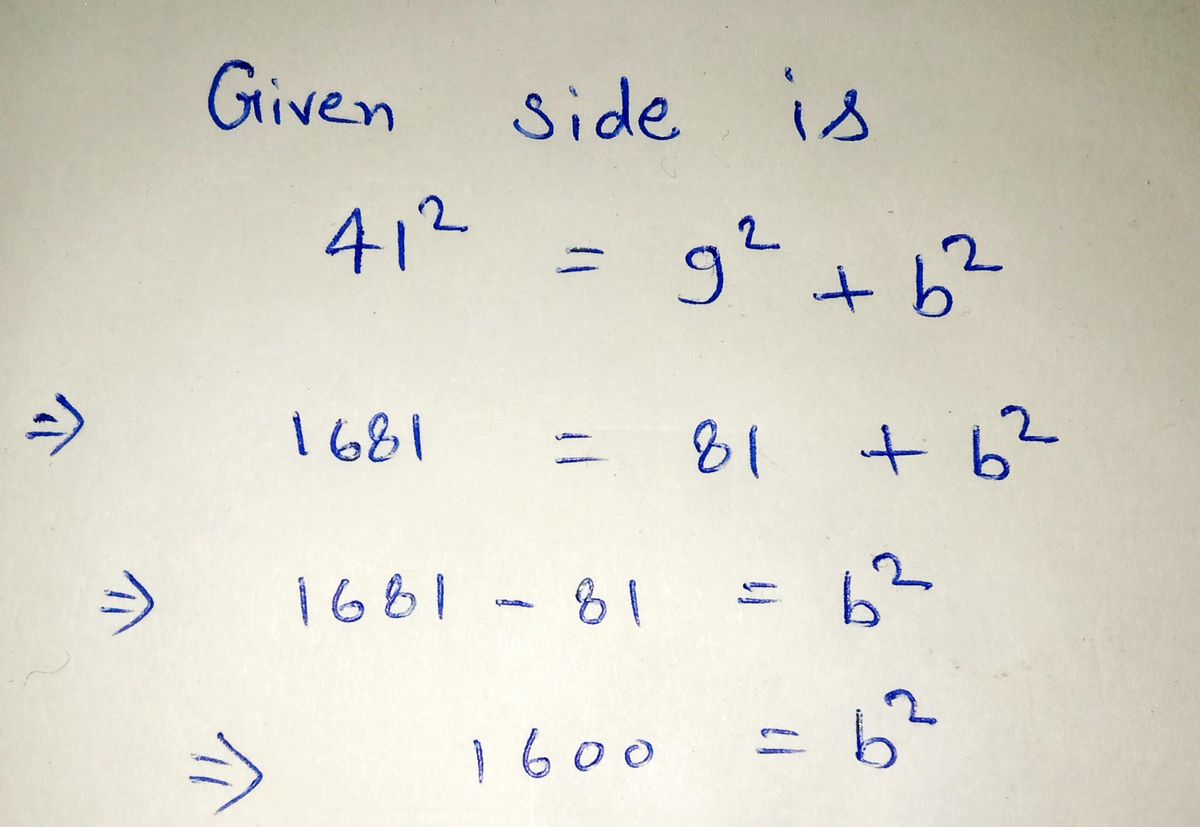 Given side is
41² = 9² + b²
⇒ 1681 = 81 + b²
⇒ 1681 - 81 = b²
⇒ 1600 = b²